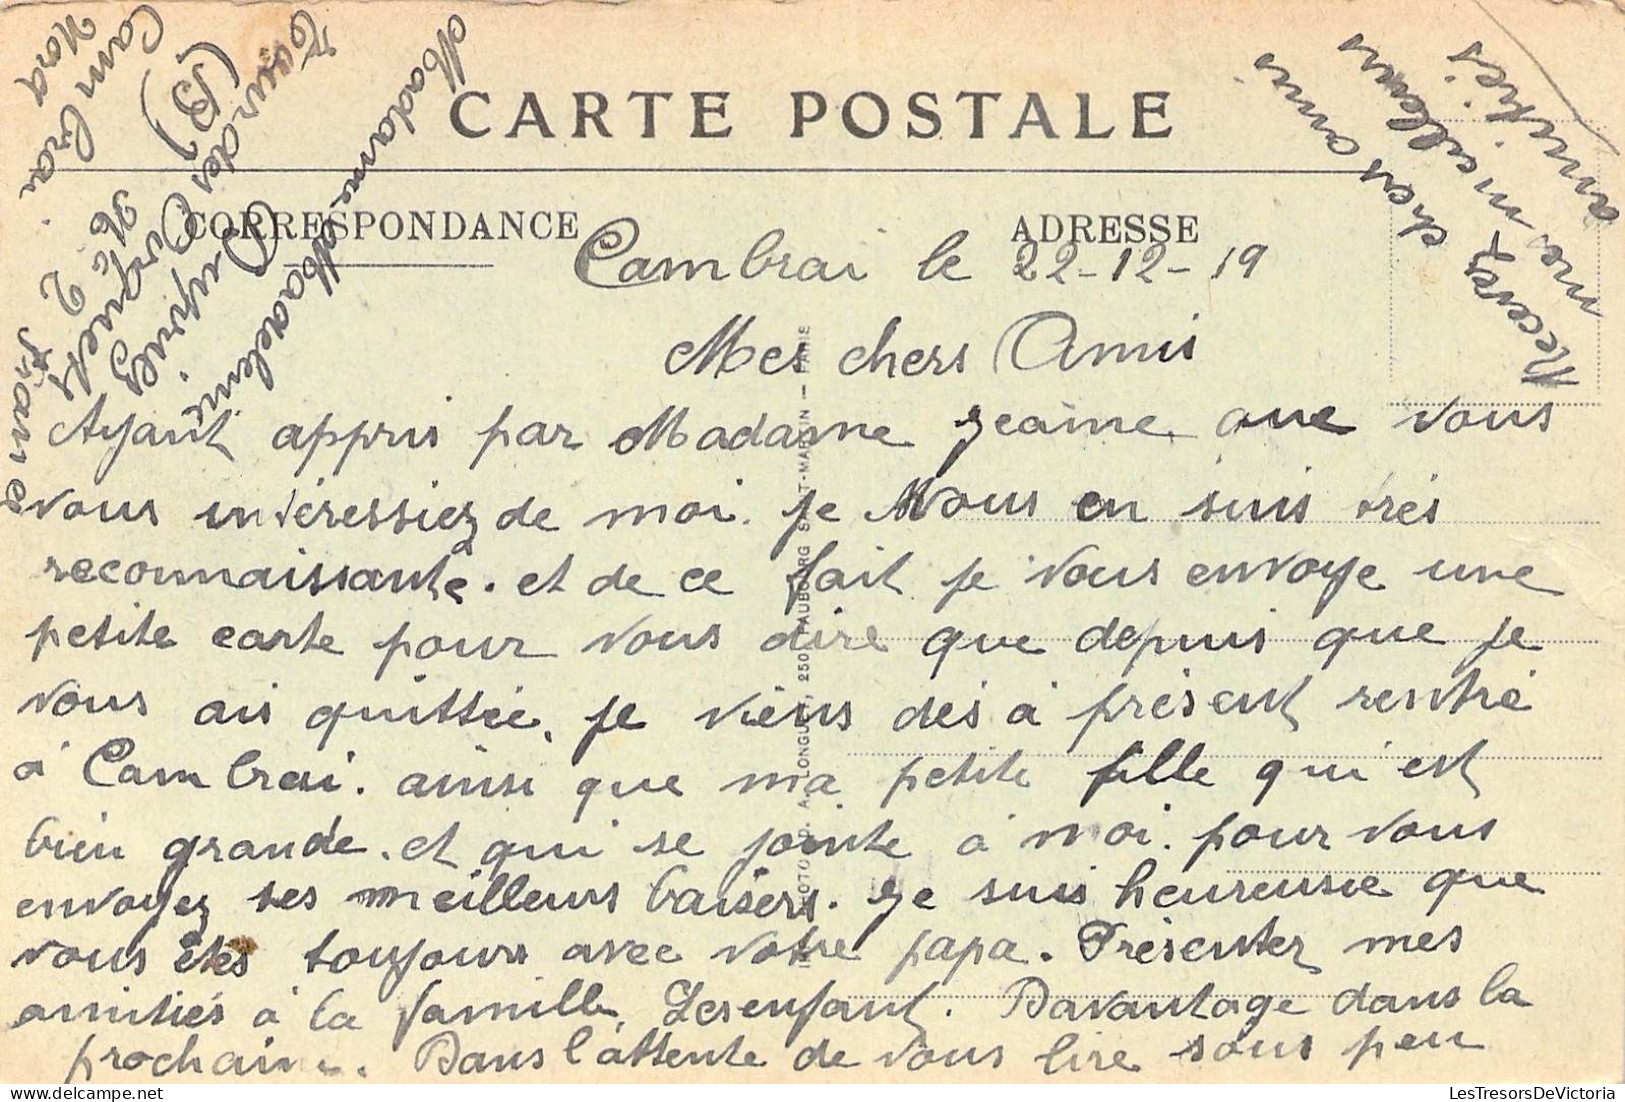 CARTE POSTALE
CORRESPONDANCE
ADRESSE
Cambrai le 22-12-19
Mes chers Amis
Ayant appris par Madame Jeaine que vous
vous intéressiez de moi. je vous en suis très
reconnaissante. et de ce fait je vous envoye une
petite carte pour vous dire que depuis que je
vous ais quittée, je viens dés à présent rentré
à Cambrai. ainsi que ma petite fille qui est
bien grande. et qui se jointe à moi. pour vous
envoyez ses meilleurs baisers. Je suis heureusie que
vous étes toujours avec votre papa. Présenter mes
amitiés à la famille Lesenfant. Davantage dans la
prochaine. Dans l'attente de vous lire sous peu
Recevez chers amis
mes meilleurs
amitiés
Madame Madeleine
Dupriez
Cour des Orquets
(B) Nº 2
Cambrai.
Nord
France
PHOTO D. A. LONGUET, 250 FAUBOURG ST-MARTIN — PARIS
LesTresorsDeVictoria